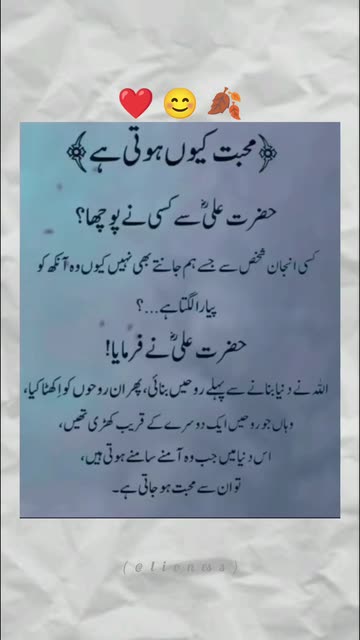 ❤️ 😊 🍂
﴿محبت کیوں ہوتی ہے﴾
حضرت علیؓ سے کسی نے پوچھا؟
کسی انجان شخص سے جسے ہم جانتے بھی نہیں کیوں وہ آنکھ کو
پیارا لگتا ہے...؟
حضرت علیؓ نے فرمایا!
اللہ نے دنیا بنانے سے پہلے روحیں بنائی، پھر ان روحوں کو اکھٹا کیا،
وہاں جو روحیں ایک دوسرے کے قریب کھڑی تھیں،
اس دنیا میں جب وہ آمنے سامنے ہوتی ہیں،
تو ان سے محبت ہو جاتی ہے۔